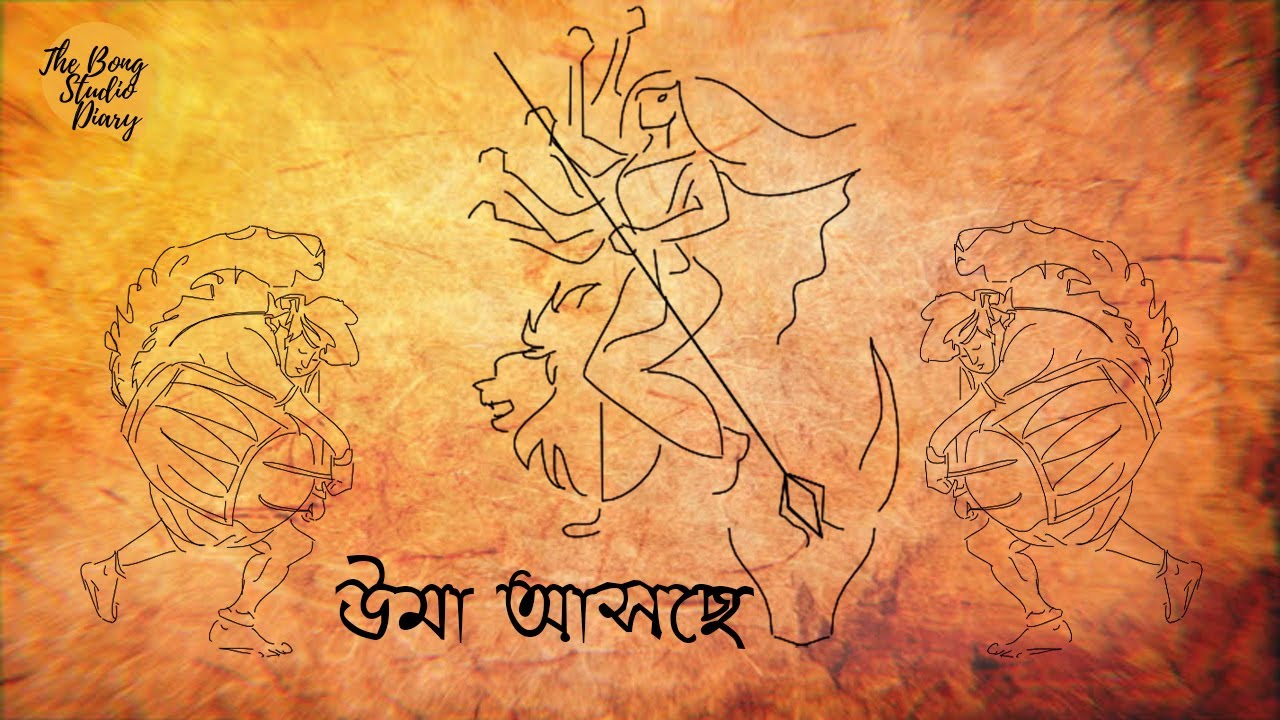 The Bong
Studio
Diary
উমা আসছে